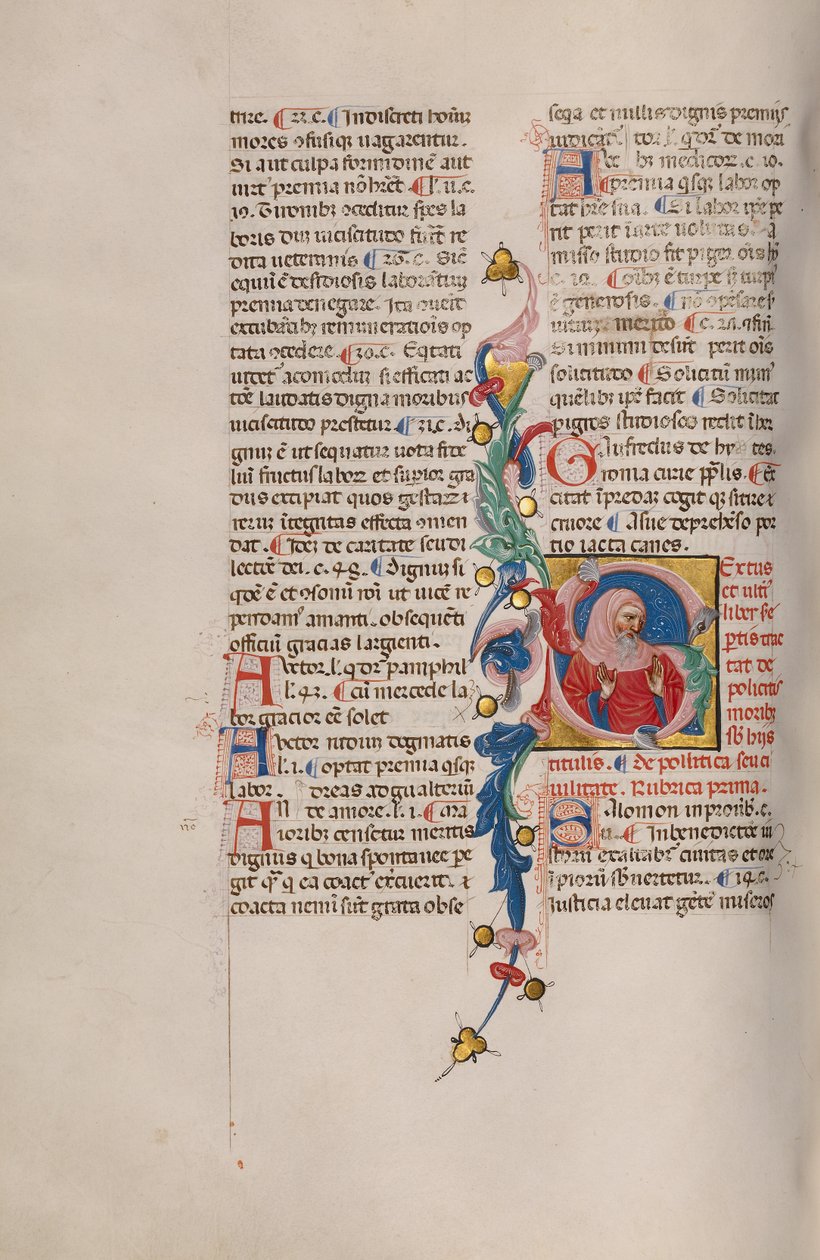 trire. 22. c. Indiscreti hominū
mores ɔfusiqꝫ uagarentur.
Si aut culpa formidinē aut
uirt' premia nō hrēt. l'. ii. c.
19. Tironibꝫ ɔceditur spes la
boris dum uicissitudo fuīt re
dita ueteranis 26. c. Sic
equū ē desidiosis laborātium
premia denegare. Ita ɔuenit
excubātibꝫ remunerationis op
tata ɔcedere. 30. c. Eqͥtati
uidet' acomodum si efficati ac
tōe laudatis digna moribus
uicissitudo prestetur. 31. c. di
gnum ē ut sequatur uota fide
lium fructus laboꝝ et superior gra
dus excipiat quos gestaꝝ
rerum ītegritas effecta ɔmen
dat. Idē de caritate seu di
lectiōe dei. c. 48. Dignum si
qͥdē ē et ɔsonum rōi ut uicē re
pendam' amanti. obsequēti
officium gracias largienti.
Auctor. l'. qͥ dr̄ pamphil'
l'. 43. Cū mercede la
bor gracior eē solet
Auctor nouum dogmatis
l'. i. optat premia qͥsqꝫ
labor.
An de amore. l'. i. ma
ioribꝫ censetur meritis
dignius qͥ bona spontanee pe
git qͣꝫ qͥ ea coact' excuerit. ⁊
coacta nemī sūt grata obse
sequia et nullis dignis premiis
uidicāt' tor. l'. qͥ dr̄ de mori
A bꝫ medicoꝝ. c. 10.
premia qͥsqꝫ labor op
tat hr̄e sua. Si labor ipē pe
rit perit īarte uoluntas. a
misso studio fit piger oīs hō
c. 12. oībꝫ ē turpe si turpi'
ē generosis. nō
merito c. 21. ɔfinī
Si minimi desint perit oīs
solicitudo Solicitū minim'
quēlibꝫ ipē facit Solicitat
pigros studiosos reddit īber
Gaufredus de
ironia curie pp̄lis. Ex
citat ī predaꝝ cogit qꝫ sitire
cruore Asue deprehēso por
tio iacta canes.
Sextus
et ultī'
liber se
ptis trac
tat de
politicis
moribꝫ
sb hiis
titulis. de politica seu ci
uilitate. Rubrica prima.
Salomon in prouibꝫ. c.
11. In benedictōe iu
storū exaltabr̄ ciuitas et ore
īpiorū sbuertetur. 14. c.
Iusticia eleuat gētē miseros